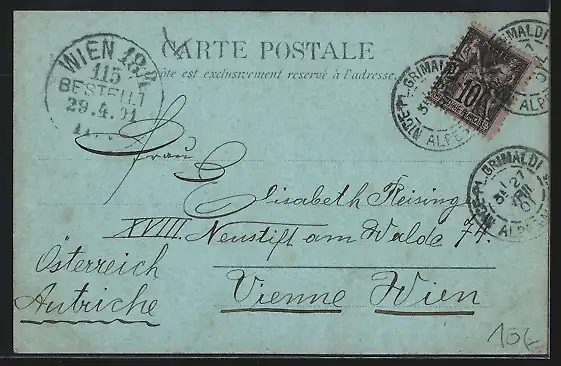 CARTE POSTALE
côte est exclusivement reservé à l'adresse
WIEN 18/1
115
BESTELLT
29.4.01
NICE PL. GRIMALDI
ALPES
10
NICE PL. GRIMALDI
5E 27
01
ALPES
Frau
Elisabeth Reising
XVIII. Neustift am Walde 74.
Österreich
Autriche
Vienne Wien
10€